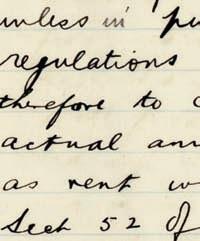 unless in pu
regulations
therefore to
actual ann
as rent w
Sect 52 of